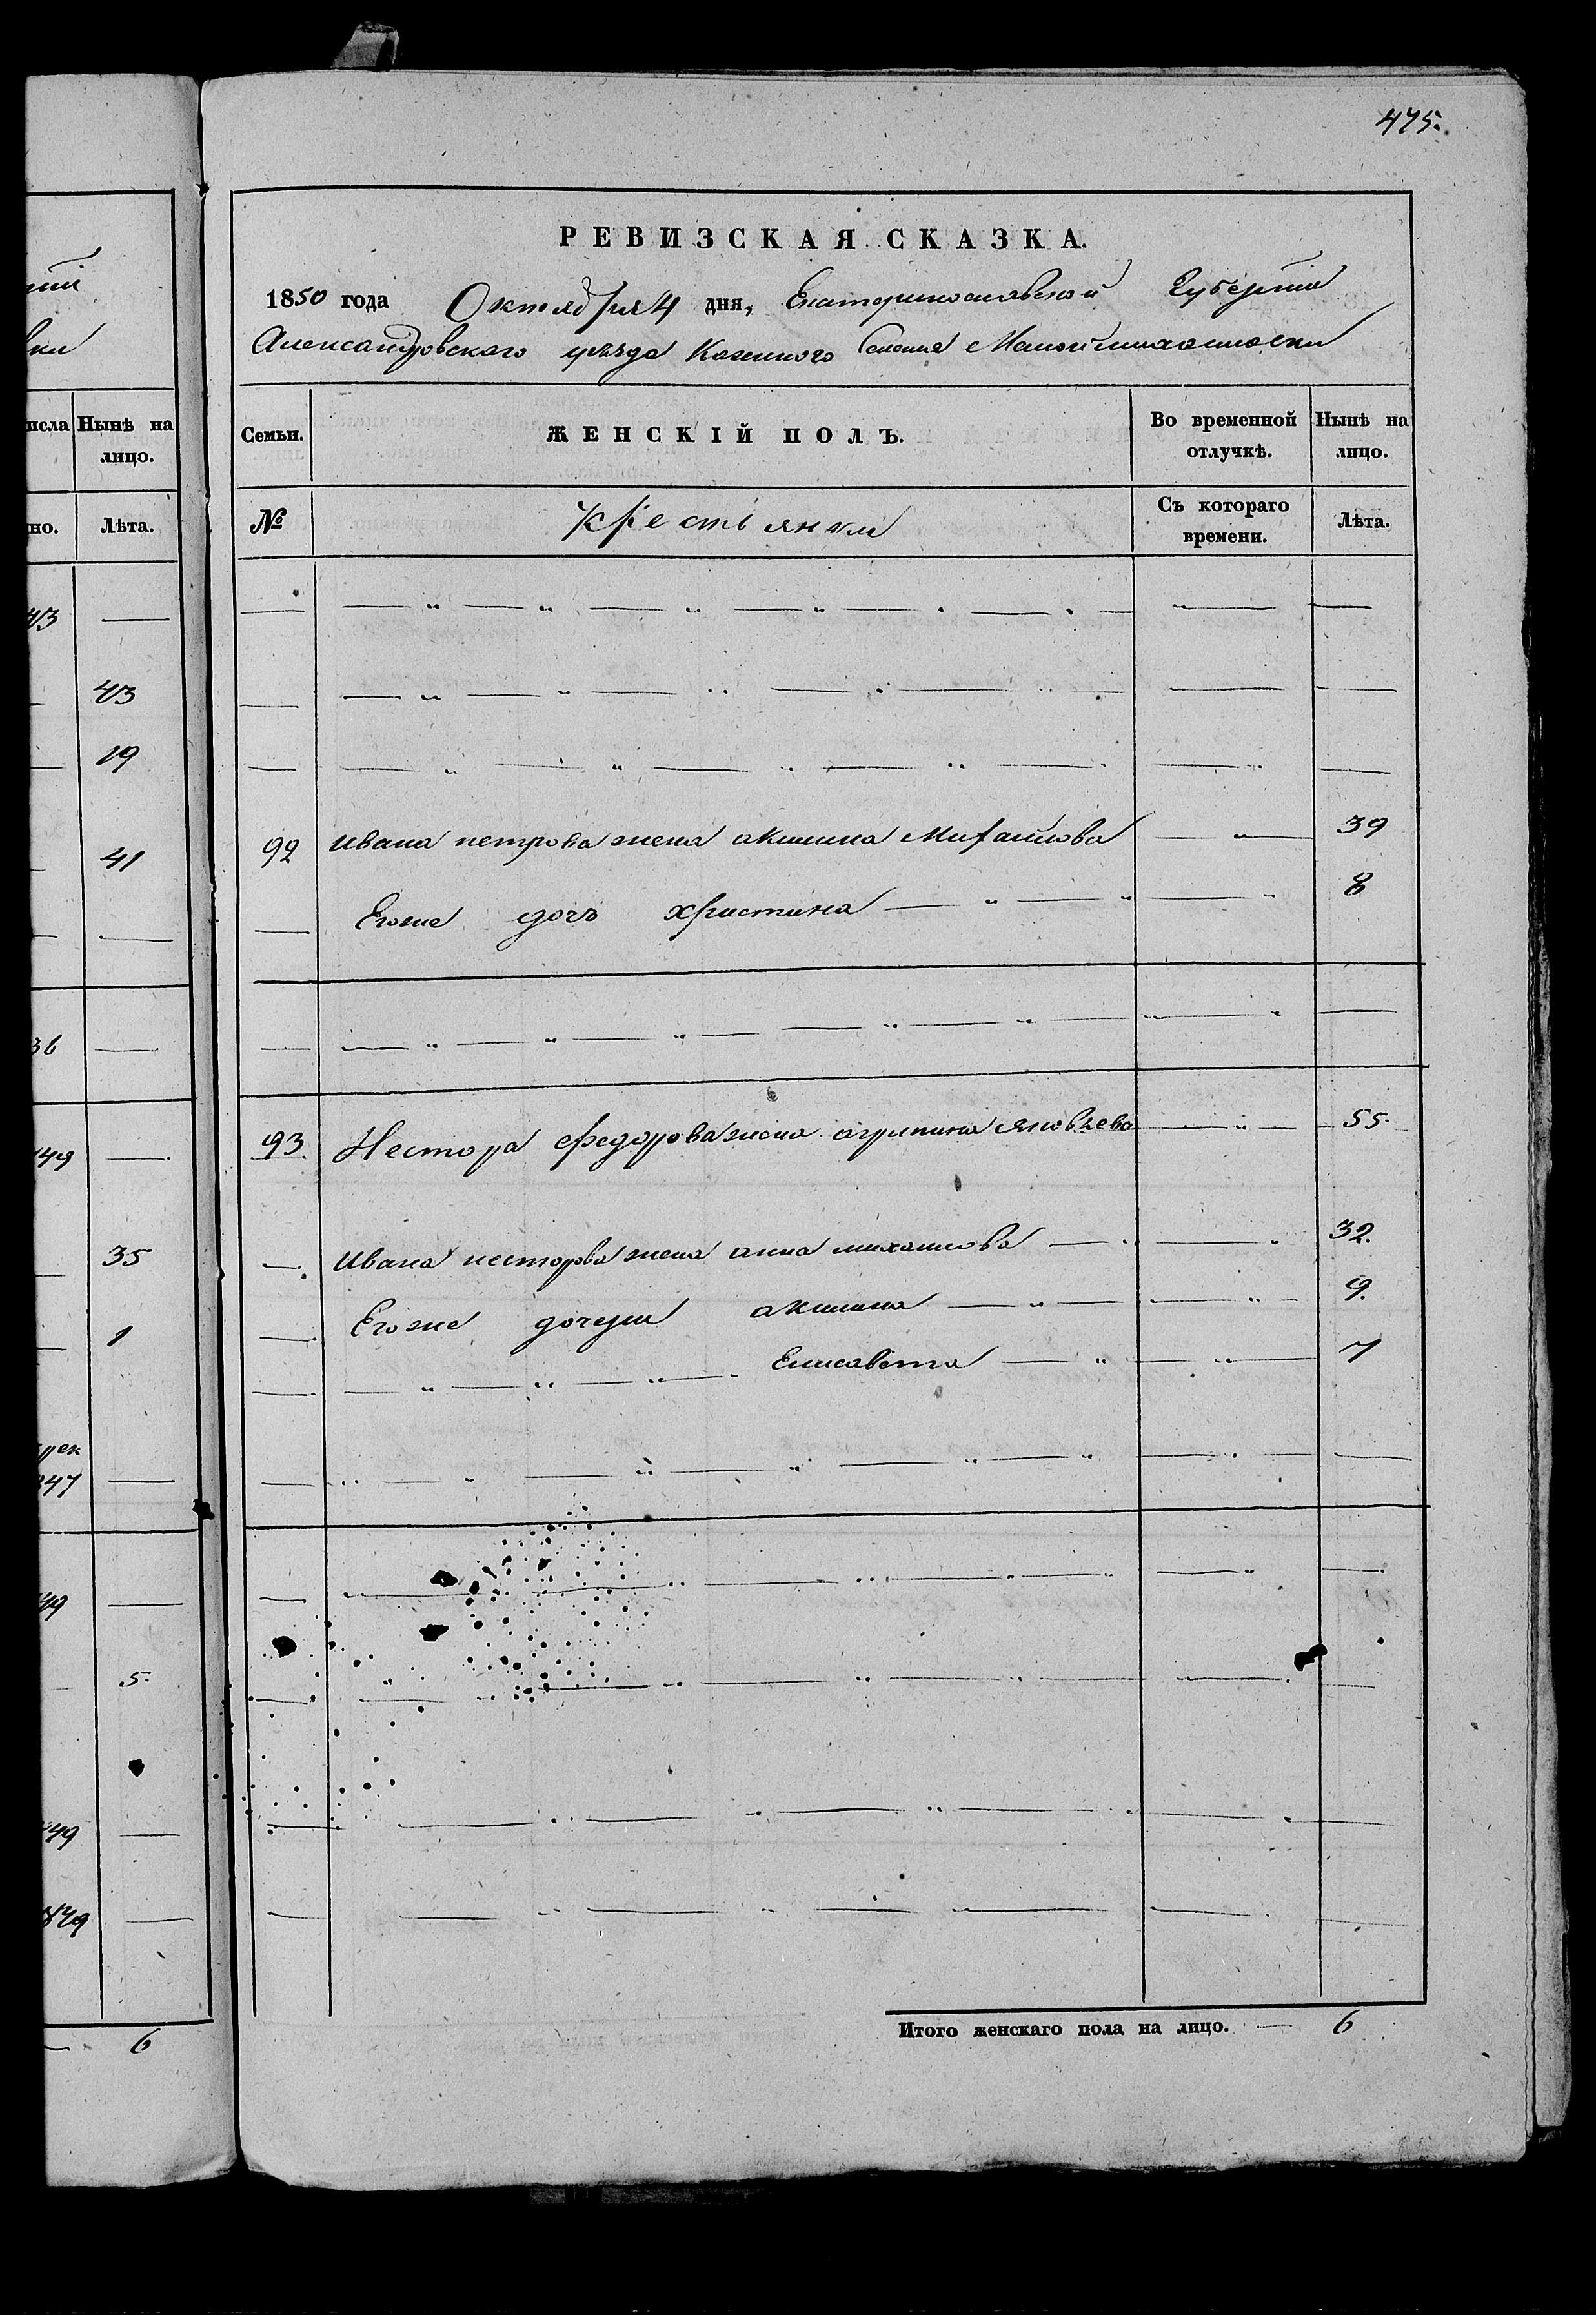 475.
РЕВИЗСКАЯ СКАЗКА.
1850 года Октября 4 дня, Екатеринославской Губерніи
Александровскаго уѣзда Казенного Селения Малой михайловки
исла
Нынѣ на лицо.
Семьи.
ЖЕНСКІЙ ПОЛЪ.
Во временной отлучкѣ.
Нынѣ на лицо.
но.
Лѣта.
№
крестьянки
Съ котораго времени.
Лѣта.
43
43
19
41
92 Ивана петрова жена акилина Михайлова 39
Егоже дочь христина 8
36
93. Нестора федорова жена агрипина яковлева 55.
49
35
Ивана нестерова жена анна михайлова 32.
Егоже дочери акилина 9.
1
Елисавета 7
47
49
5.
49
849
Итого женскаго пола на лицо. 6
6